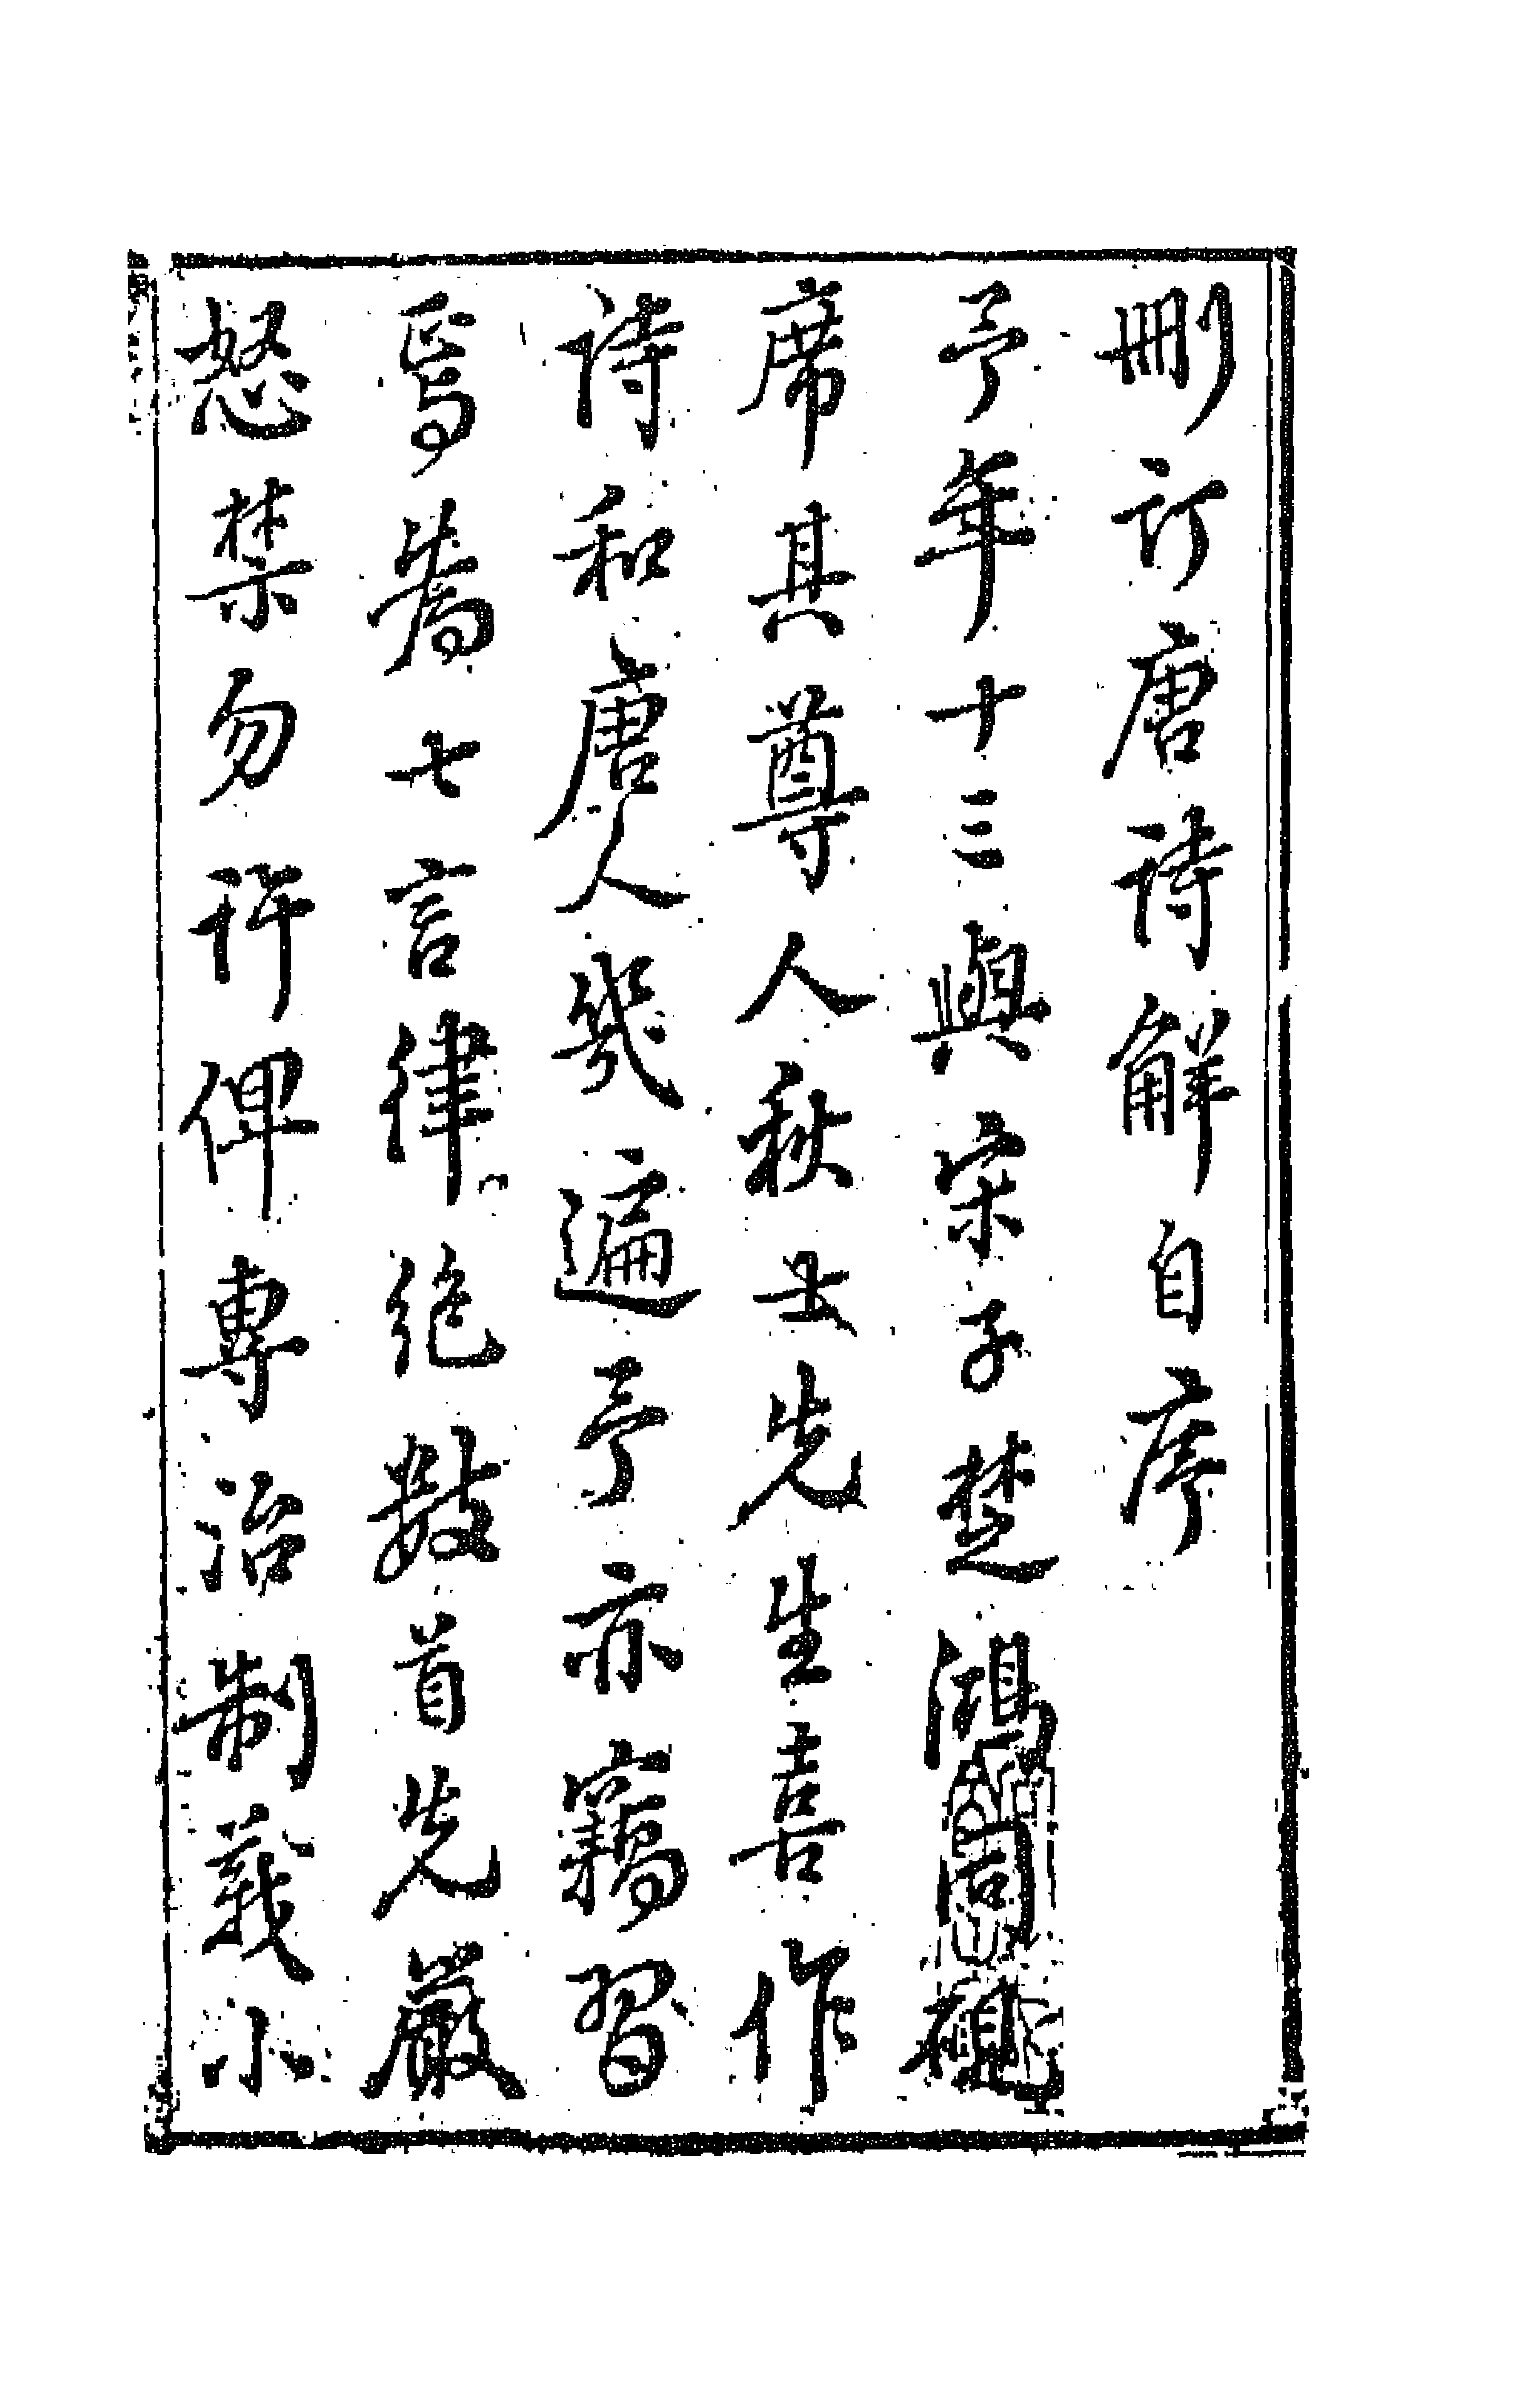 刪訂唐詩解自序
予年十三與宋子楚鴻同硯
席其尊人秋士先生喜作
詩和唐人幾遍予亦竊習
焉為七言律絕數首先嚴
怒禁勿許俾專治制義小